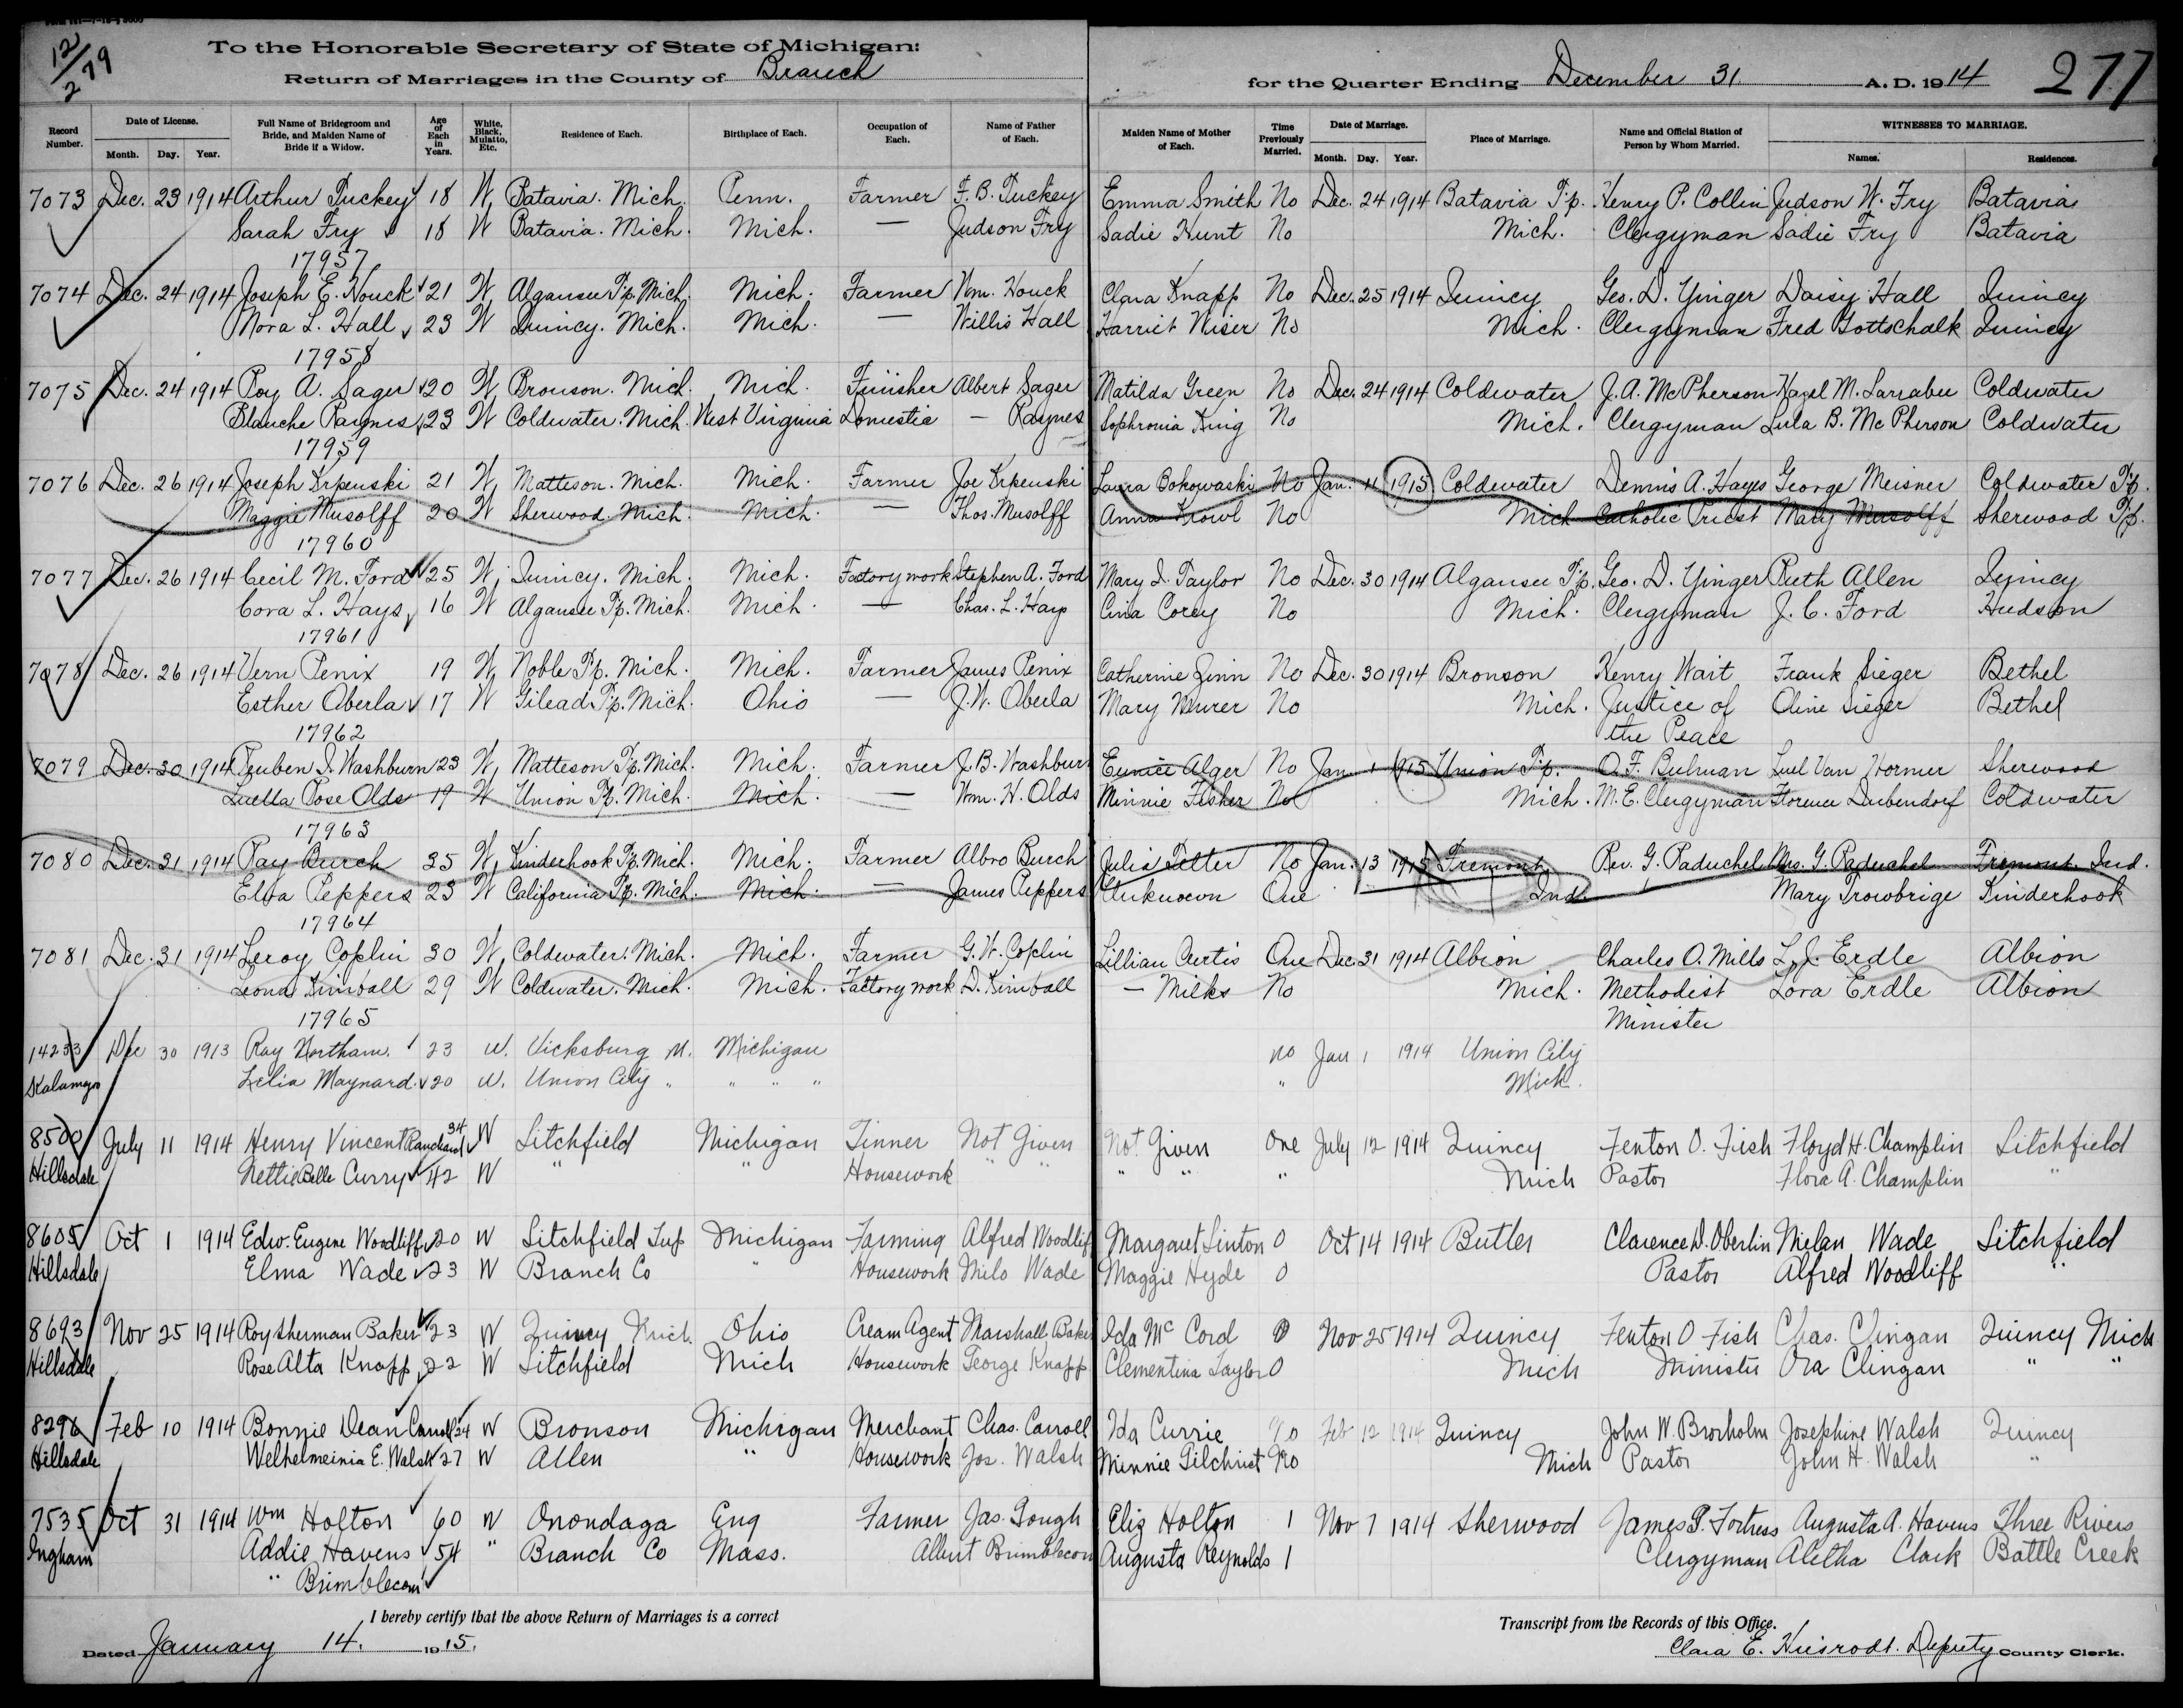 12/2 79
To the Honorable Secretary of State of Michigan:
Return of Marriages in the County of Branch for the Quarter Ending December 31 A. D. 1914 277
Record Number. Date of License. Month. Day. Year. Full Name of Bridegroom and Bride, and Maiden Name of Bride if a Widow. Age of Each in Years. White, Black, Mulatto, Etc. Residence of Each. Birthplace of Each. Occupation of Each. Name of Father of Each. Maiden Name of Mother of Each. Time Previously Married. Date of Marriage. Month. Day. Year. Place of Marriage. Name and Official Station of Person by Whom Married. WITNESSES TO MARRIAGE. Names. Residences.
7073 Dec. 23 1914 Arthur Tuckey 18 W Batavia. Mich. Penn. Farmer F. B. Tuckey Emma Smith No Dec. 24 1914 Batavia Tp. Henry P. Collin Judson W. Fry Batavia
Sarah Fry 18 W Batavia. Mich. Mich. — Judson Fry Sadie Hunt No Mich. Clergyman Sadie Fry Batavia
17957
7074 Dec. 24 1914 Joseph E. Houck 21 W Algansee Tp. Mich. Mich. Farmer Wm. Houck Clara Knapp No Dec. 25 1914 Quincy Geo. D. Yinger Daisy Hall Quincy
Nora L. Hall 23 W Quincy. Mich. Mich. — Willis Hall Harriet Wiser No Mich. Clergyman Fred Gottschalk Quincy
17958
7075 Dec. 24 1914 Roy A. Sager 20 W Bronson. Mich. Mich. Finisher Albert Sager Matilda Green No Dec. 24 1914 Coldwater J. A. McPherson Hazel M. Larrabee Coldwater
Blanche Raynes 23 W Coldwater. Mich. West Virginia Domestic — Raynes Sophronia King No Mich. Clergyman Lula B. McPherson Coldwater
17959
7076 Dec. 26 1914 Joseph Krpenski 21 W Matteson. Mich. Mich. Farmer Joe Krpenski Laura Cokowaski No Jan. 11 1915 Coldwater Dennis A. Hayes George Meisner Coldwater Tp.
Maggie Musolff 20 W Sherwood. Mich. Mich. — Thos. Musolff Anna Krowl No Mich Catholic Priest Mary Musolff Sherwood Tp.
17960
7077 Dec. 26 1914 Cecil M. Ford 25 W Quincy. Mich. Mich. Factory work Stephen A. Ford Mary I. Taylor No Dec. 30 1914 Algansee Tp. Geo. D. Yinger Ruth Allen Quincy
Cora L. Hays 16 W Algansee Tp. Mich. Mich. — Chas. L. Hays Cina Corey No Mich. Clergyman J. C. Ford Hudson
17961
7078 Dec. 26 1914 Vern Penix 19 W Noble Tp. Mich. Mich. Farmer James Penix Catherine Zinn No Dec. 30 1914 Bronson Henry Wait Frank Sieger Bethel
Esther Oberla 17 W Gilead Tp. Mich. Ohio — J. W. Oberla Mary Murer No Mich. Justice of Oline Sieger Bethel
the Peace
17962
7079 Dec. 30 1914 Reuben I. Washburn 23 W Matteson Tp. Mich. Mich. Farmer J. B. Washburn Eunice Alger No Jan 1 1915 Union Tp. O. F. Bulman Luel Van Horner Sherwood
Luella Rose Olds 19 W Union Tp. Mich. Mich. — Wm. H. Olds Minnie Fisher No Mich. M. E. Clergyman Florence Dubendorf Coldwater
17963
7080 Dec. 31 1914 Ray Burch 35 W Kinderhook Tp. Mich. Mich. Farmer Albro Burch Julia Teller No Jan. 13 1915 Fremont Rev. G. Paduchel Mrs. G. Paduchel Fremont. Ind.
Elva Peppers 23 W California Tp. Mich. Mich. — James Peppers Unknown One Ind Mary Trowbrige Kinderhook
17964
7081 Dec. 31 1914 Leroy Coplin 30 W Coldwater. Mich. Mich. Farmer G. W. Coplin Lillian Curtis One Dec. 31 1914 Albion Charles O. Mills L. J. Erdle Albion
Leona Kimball 29 W Coldwater. Mich. Mich. Factory work D. Kimball — Milks No Mich. Methodist Lora Erdle Albion
Minister
17965
14233 Dec 30 1913 Ray Northam. 23 W. Vicksburg M. Michigan no Jan 1 1914 Union City
Kalamazoo Lelia Maynard 20 W. Union City " " " " " Mich.
8500 July 11 1914 Henry Vincent Ranchard 34 W Litchfield Michigan Tinner Not Given Not Given One July 12 1914 Quincy Fenton O. Fish Floyd H. Champlin Litchfield
Hillsdale Nettie Belle Curry 42 W " " Housework " " " " " Mich Pastor Flora A. Champlin "
8605 Oct 1 1914 Edw. Eugene Woodliff 20 W Litchfield Twp Michigan Farming Alfred Woodliff Margaret Linton 0 Oct 14 1914 Butler Clarence D. Oberlin Milan Wade Litchfield
Hillsdale Elma Wade 23 W Branch Co " Housework Milo Wade Maggie Hyde 0 Pastor Alfred Woodliff "
8693 Nov 25 1914 Roy Sherman Baker 23 W Quincy Mich. Ohio Cream Agent Marshall Baker Ida McCord 0 Nov 25 1914 Quincy Fenton O Fish Chas. Clingan Quincy Mich
Hillsdale Rose Alta Knapp 22 W Litchfield Mich Housework George Knapp Clementina Taylor 0 Mich Minister Ora Clingan " "
8296 Feb 10 1914 Bonnie Dean Carroll 24 W Bronson Michigan Merchant Chas. Carroll Ida Currie No Feb 12 1914 Quincy John W. Broxholm Josephine Walsh Quincy
Hillsdale Welhelmeinia E. Walsh 27 W Allen " Housework Jos. Walsh Minnie Gilchrist No Mich Pastor John H. Walsh "
7535 Oct 31 1914 Wm Holton 60 W Onondaga Eng Farmer Jas. Gough Eliz Holton 1 Nov 7 1914 Sherwood James P. Fortress Augusta A. Havens Three Rivers
Ingham Addie Havens 54 " Branch Co Mass. Albert Brimblecom Augusta Reynolds 1 Clergyman Aletha Clark Battle Creek
" Brimblecom
I hereby certify that the above Return of Marriages is a correct Transcript from the Records of this Office.
Dated January 14. 1915. Clara E. Husrodt. Deputy County Clerk.